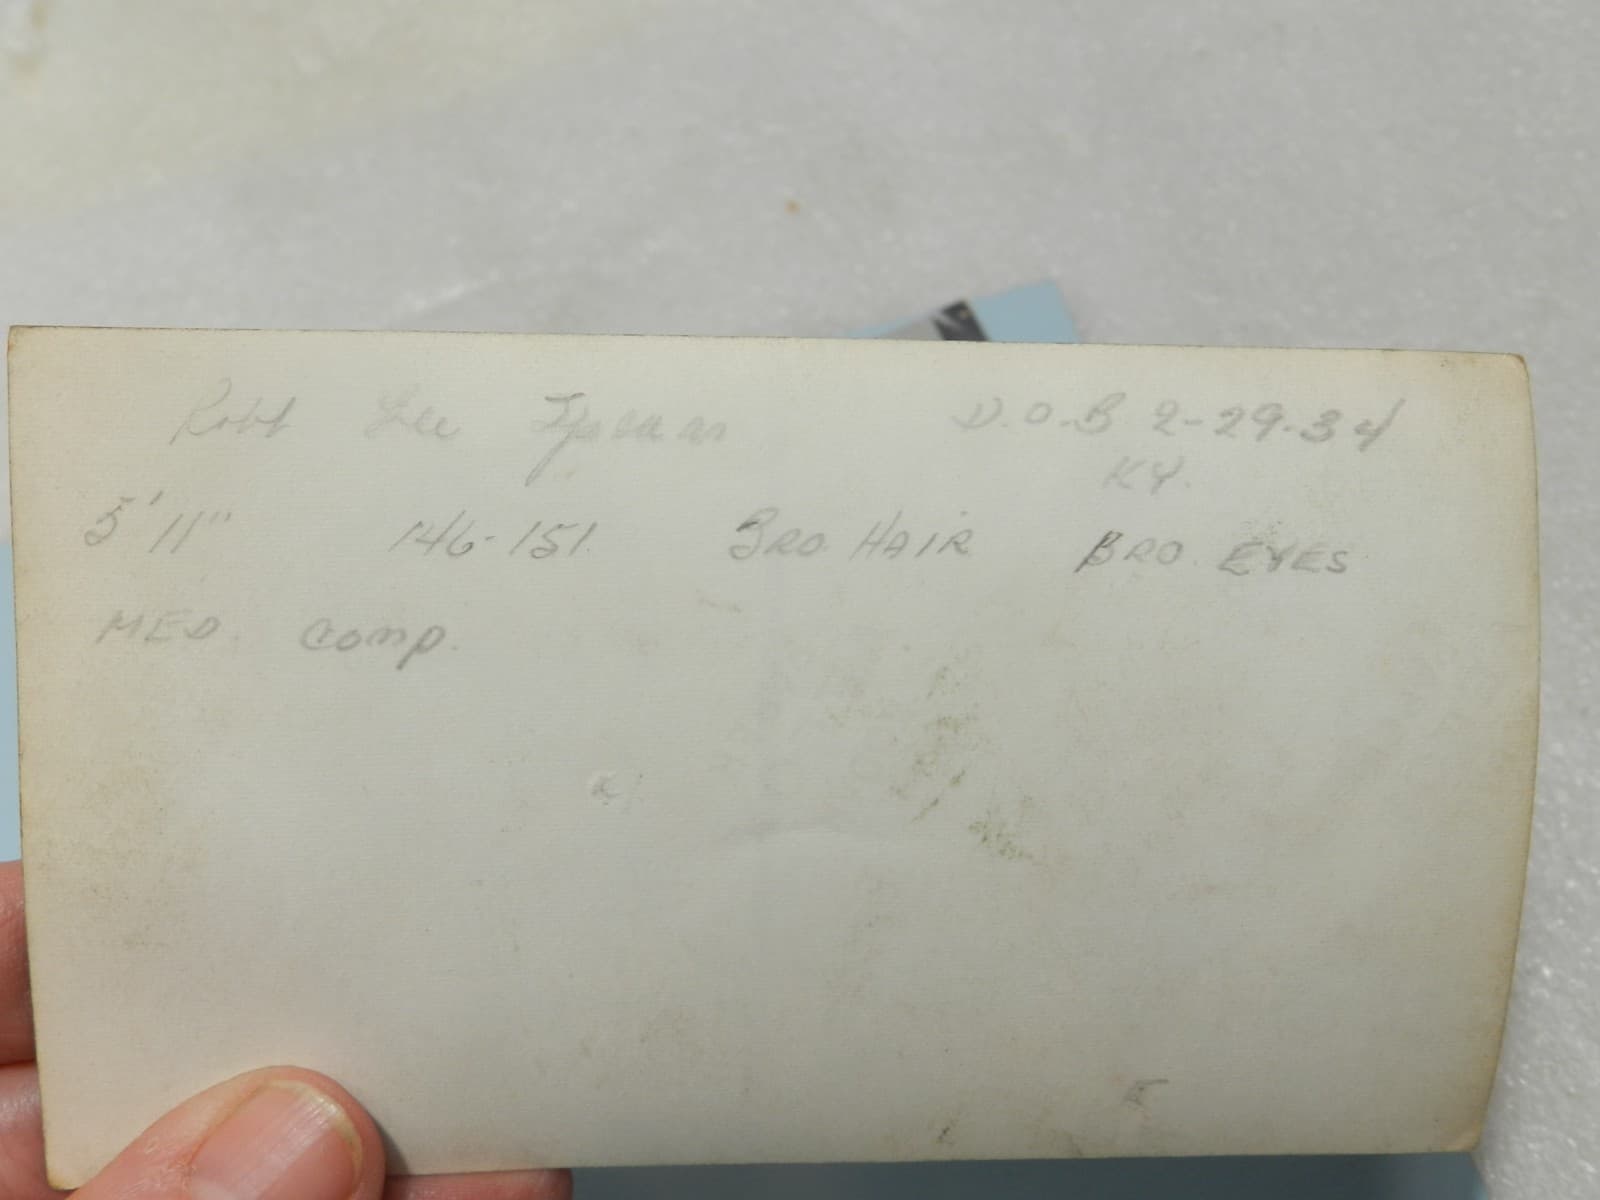 Robt Lee Spears D.O.B 2-29-34
KY.
5'11" 146-151 BRO. HAIR BRO. EYES
MED. COMP.